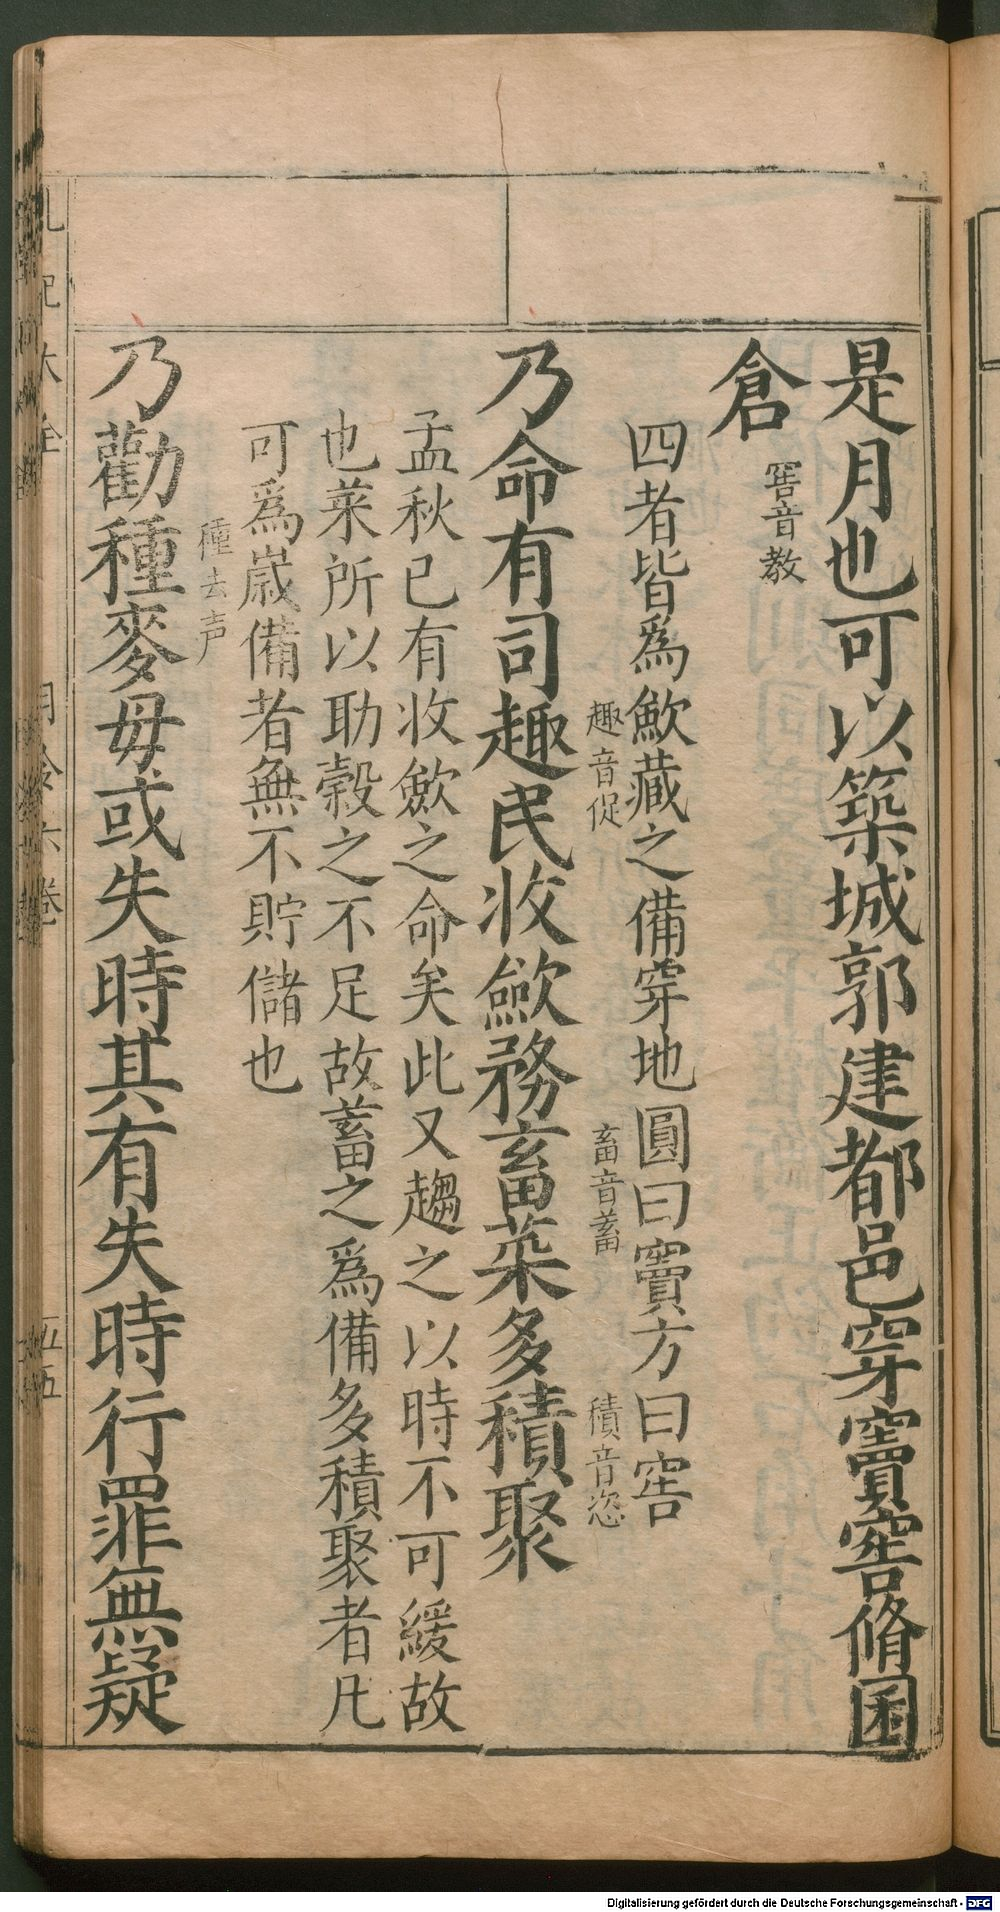 是月也可以築城郭建都邑穿竇窖脩囷
倉
窖音教
四者皆爲歛藏之備穿地圓曰竇方曰窖
趣音促
畜音蓄
積音恣
乃命有司趣民收歛務畜菜多積聚
孟秋已有收歛之命矣此又趨之以時不可緩故
也菜所以助榖之不足故蓄之爲備多積聚者凡
可爲嵗備者無不貯儲也
種去声
乃勸種麥毋或失時其有失時行罪無疑
月令六卷
五五
Digitalisierung gefördert durch die Deutsche Forschungsgemeinschaft - DFG